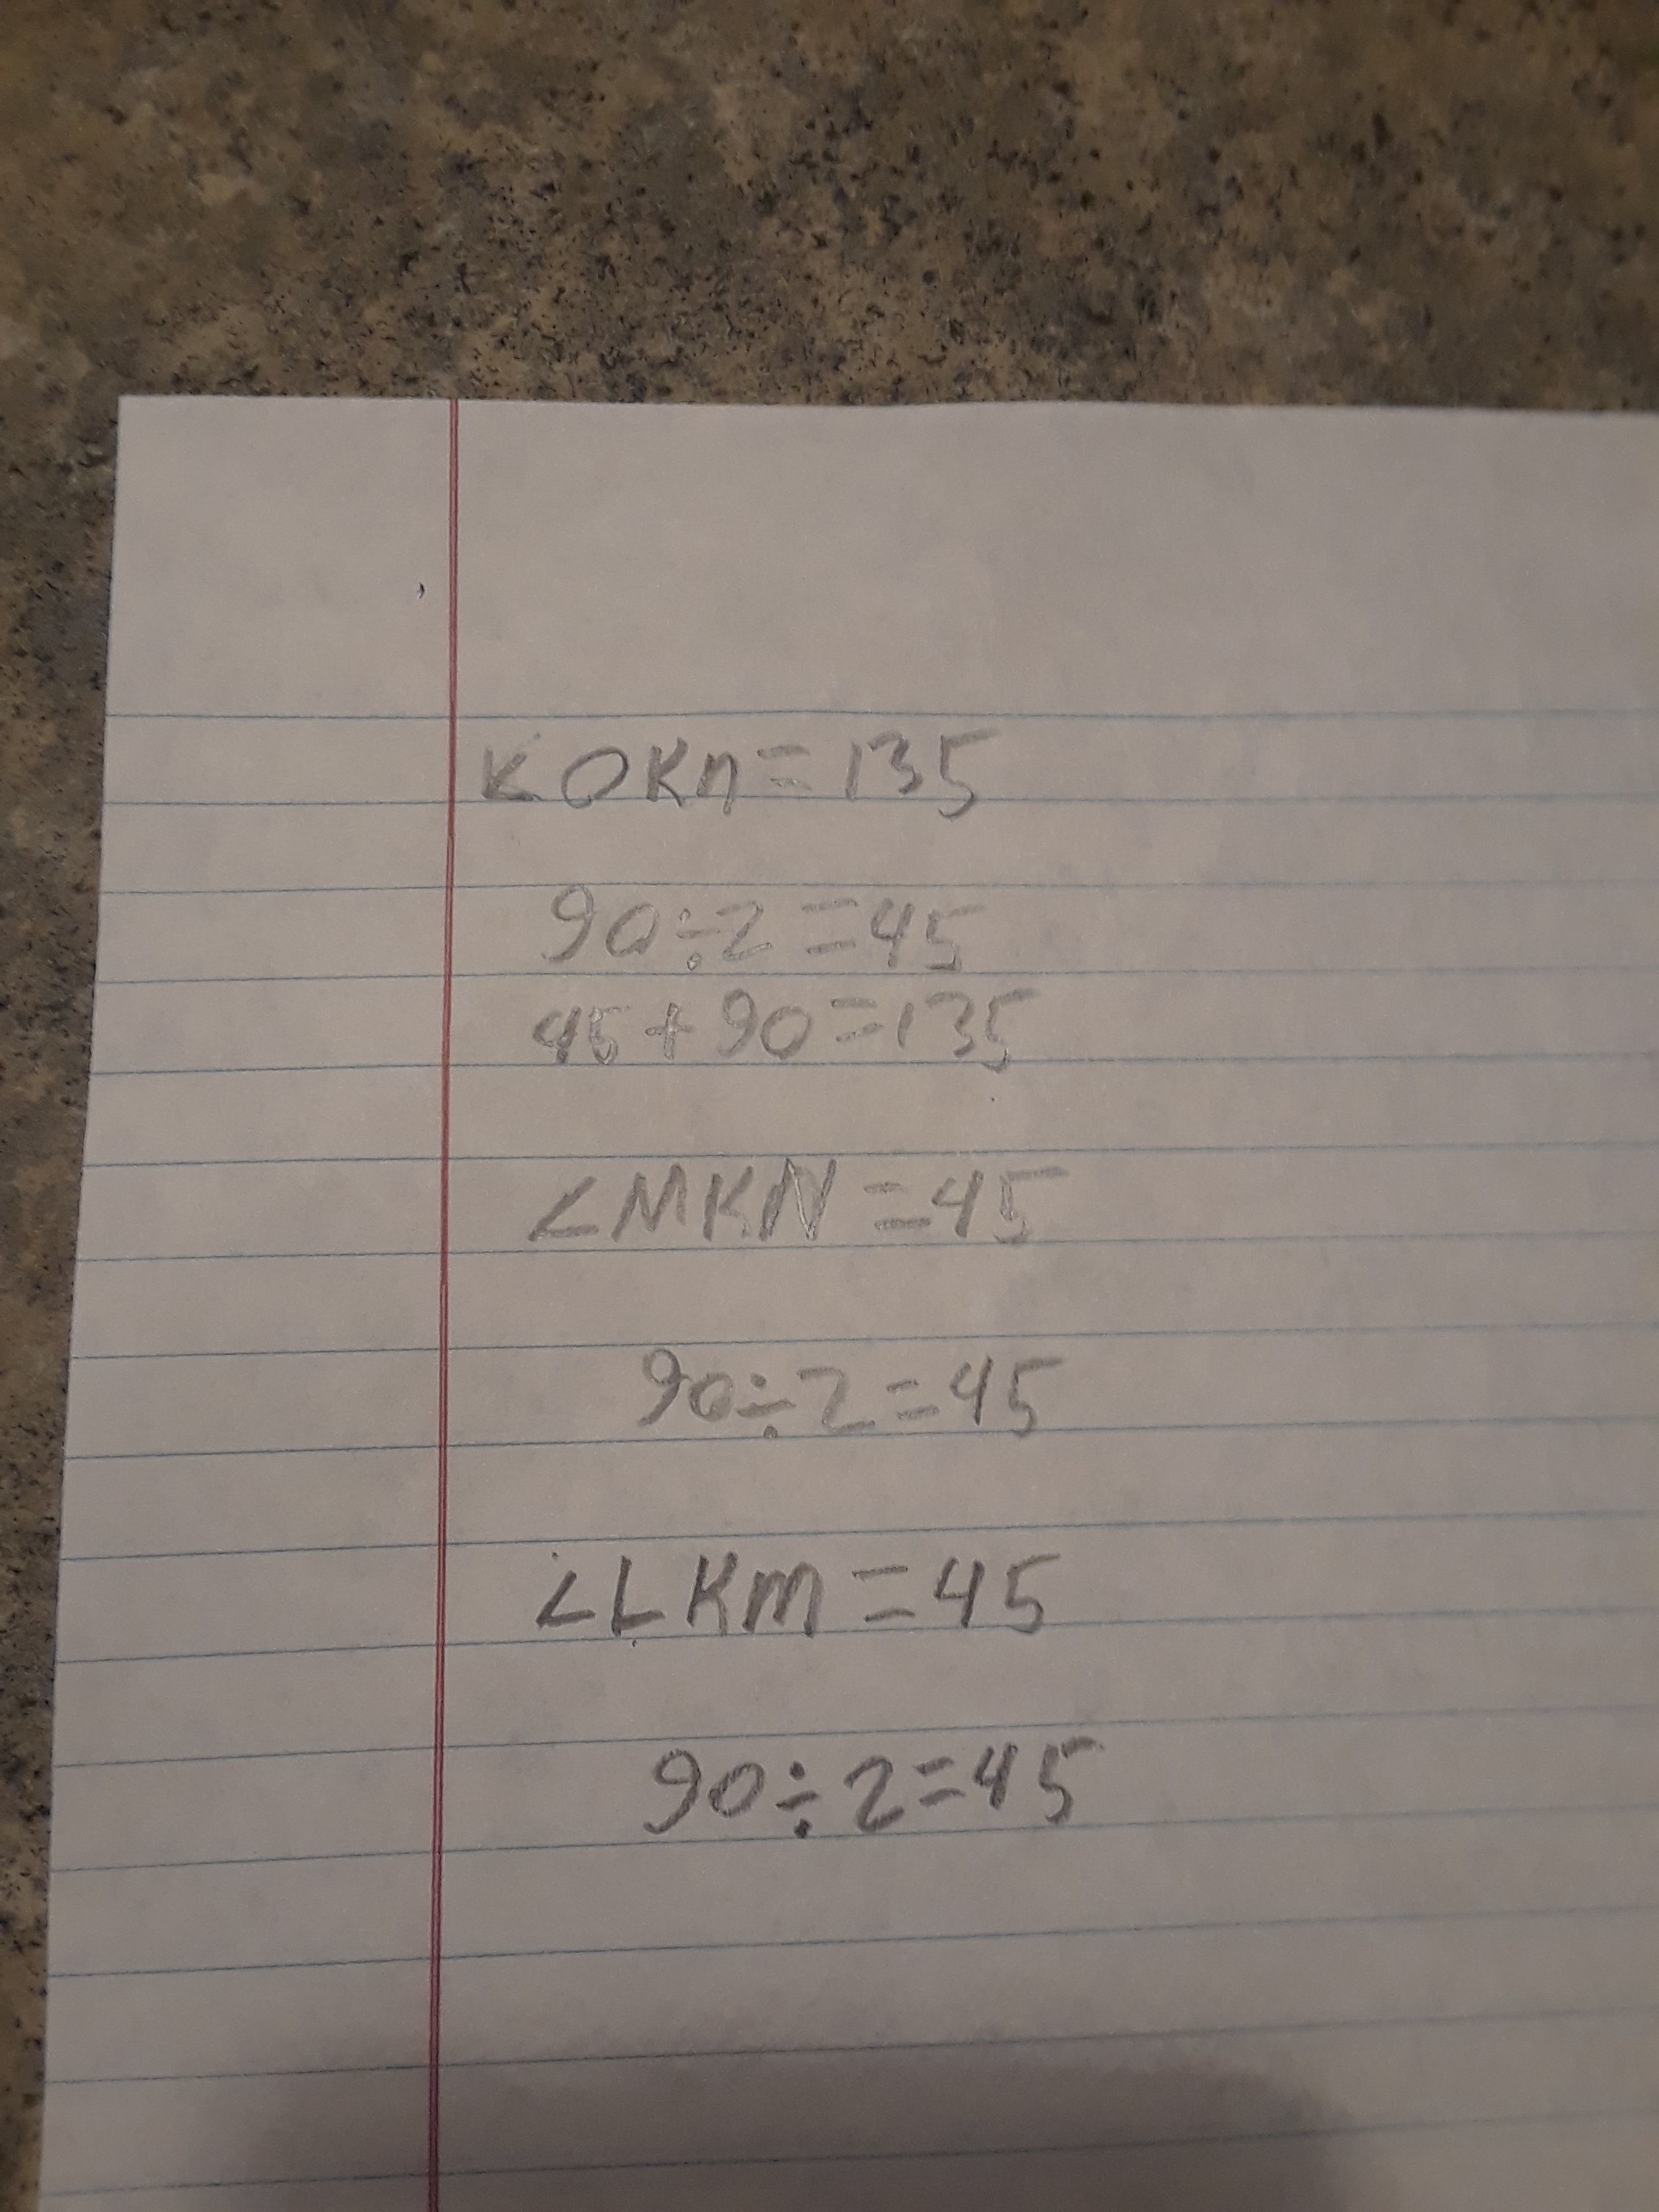 ∠OKn=135
90÷2=45
45+90=135
∠MKN=45
90÷2=45
∠LKM=45
90÷2=45